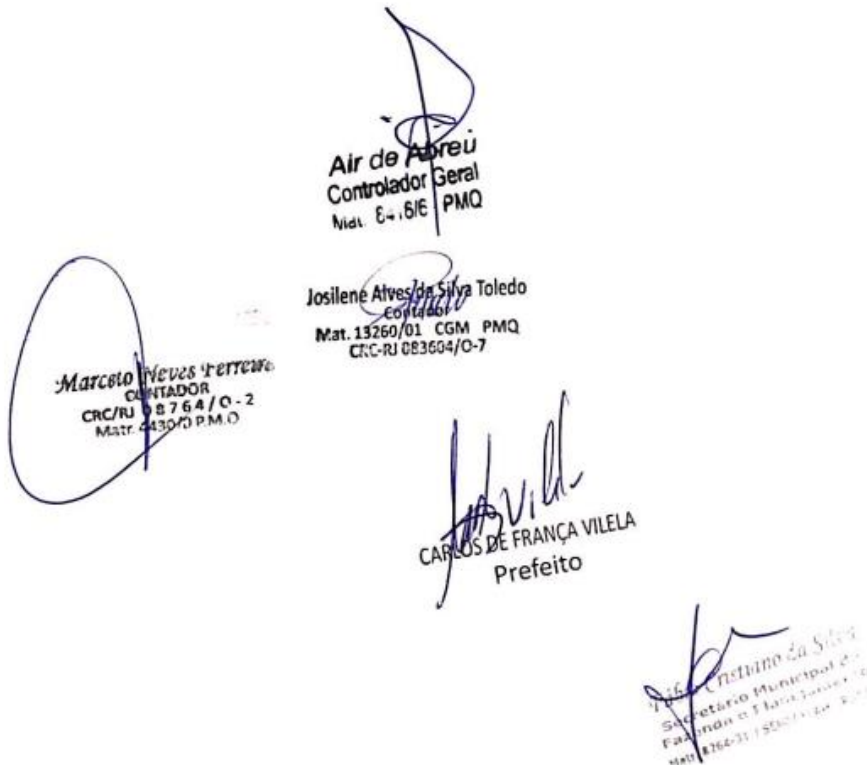 Air de Abreu
Controlador Geral
PMQ
Josilene Alves da Silva Toledo
Contador
Mat. 13260/01 CGM PMQ
CRC-RJ 083604/O-7
Marcelo Neves Ferreira
CONTADOR
CRC/RJ 8764/O-2
Matr. P.M.Q
CARLOS DE FRANÇA VILELA
Prefeito
Cristiano da Silva
Secretário Municipal de
Fazenda e Planejamento